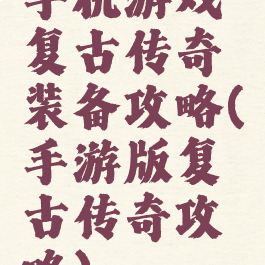 手机游戏
复古传奇
装备攻略(
手游版复
古传奇攻
略)